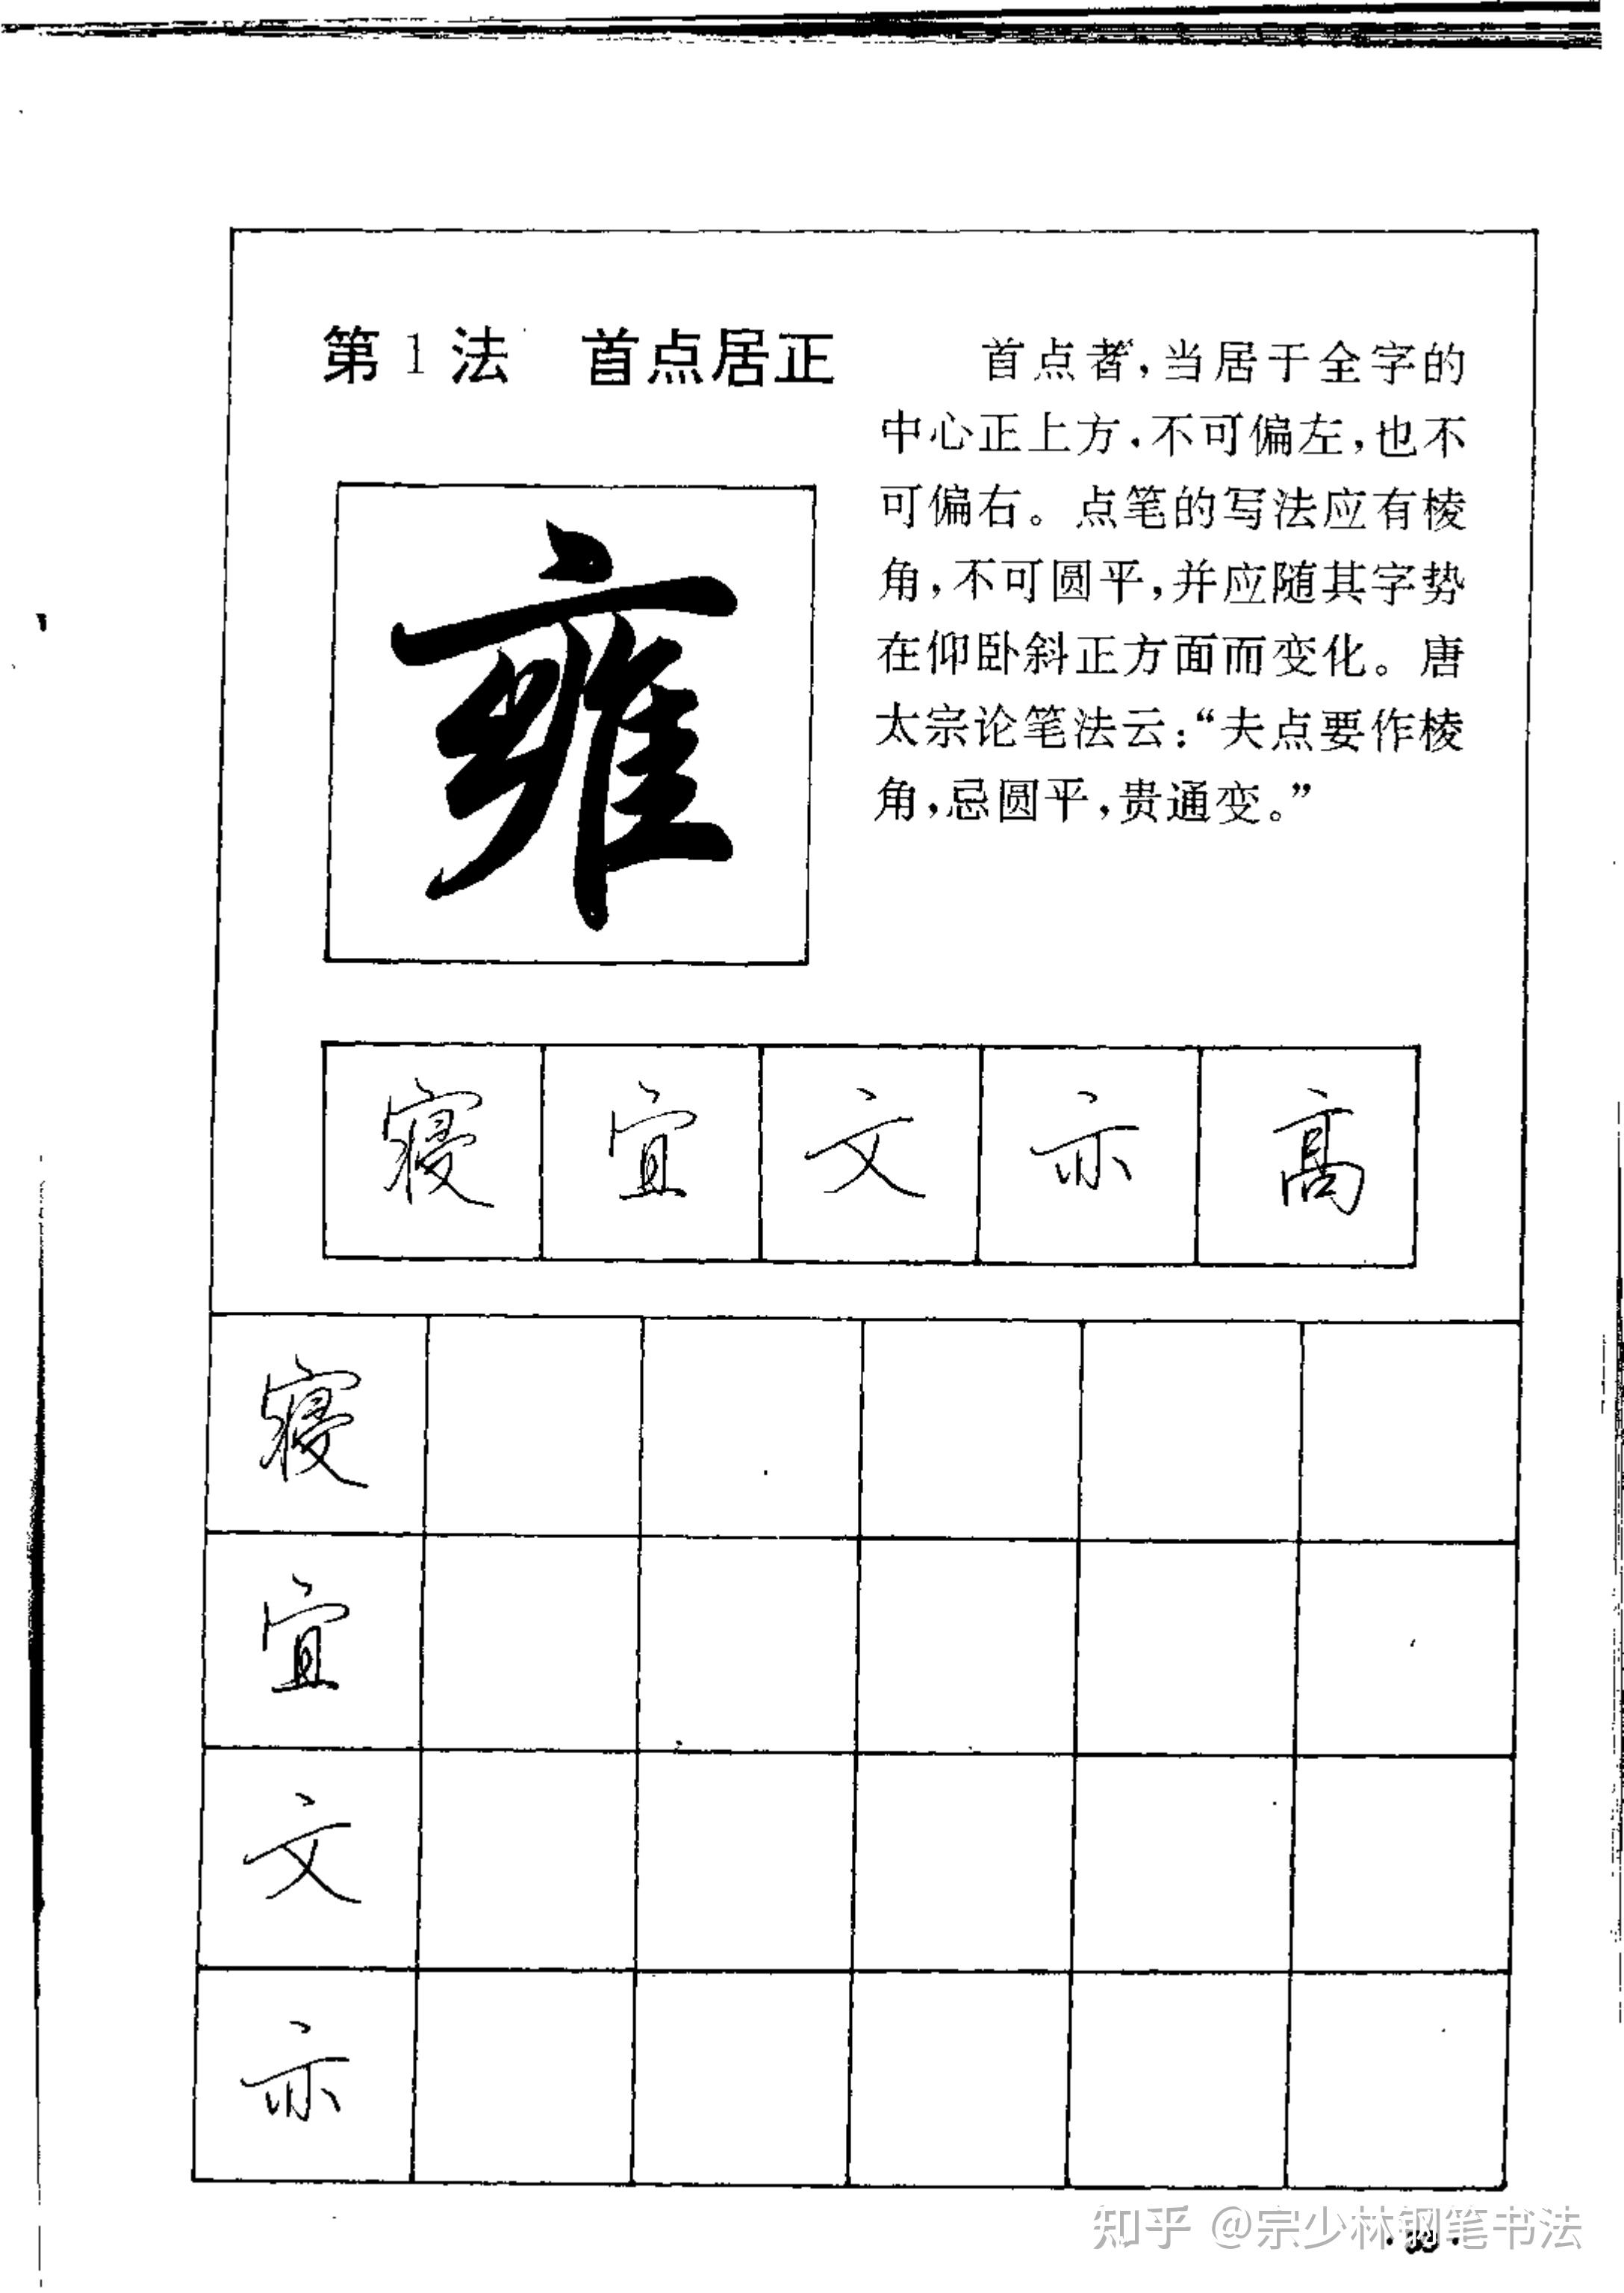 第1法 首点居正
首点者，当居于全字的
中心正上方，不可偏左，也不
可偏右。点笔的写法应有棱
角，不可圆平，并应随其字势
在仰卧斜正方面而变化。唐
太宗论笔法云：“夫点要作棱
角，忌圆平，贵通变。”
雍
寝 宜 文 亦 高
寝
宜
文
亦
知乎 @宗少林钢笔书法